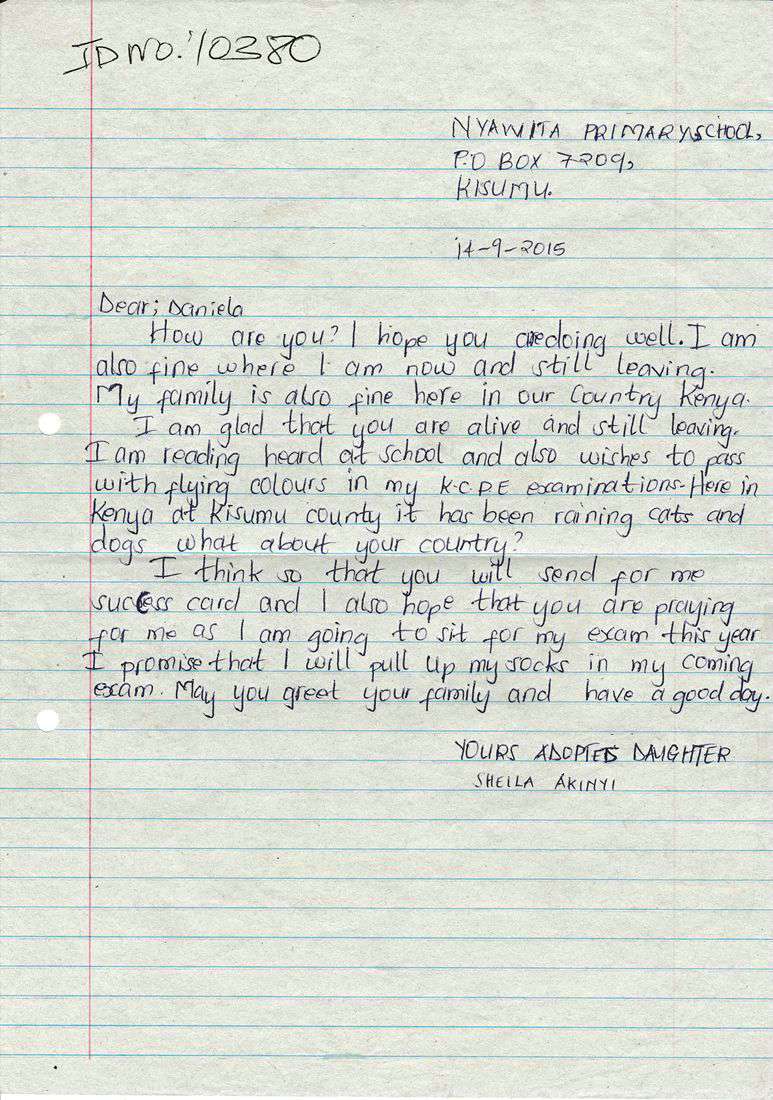 ID NO: 10380
NYAWITA PRIMARY SCHOOL,
P.O BOX 7209,
KISUMU.
14-9-2015
Dear; Daniela
How are you? I hope you are doing well. I am
also fine where I am now and still leaving.
My family is also fine here in our Country Kenya.
I am glad that you are alive and still leaving.
I am reading heard at school and also wishes to pass
with flying colours in my K.C.P.E examinations. Here in
Kenya at Kisumu county it has been raining cats and
dogs what about your country?
I think so that you will send for me
success card and I also hope that you are praying
for me as I am going to sit for my exam this year
I promise that I will pull up my socks in my coming
exam. May you greet your family and have a good day.
YOURS ADOPTED DAUGHTER
SHEILA AKINYI